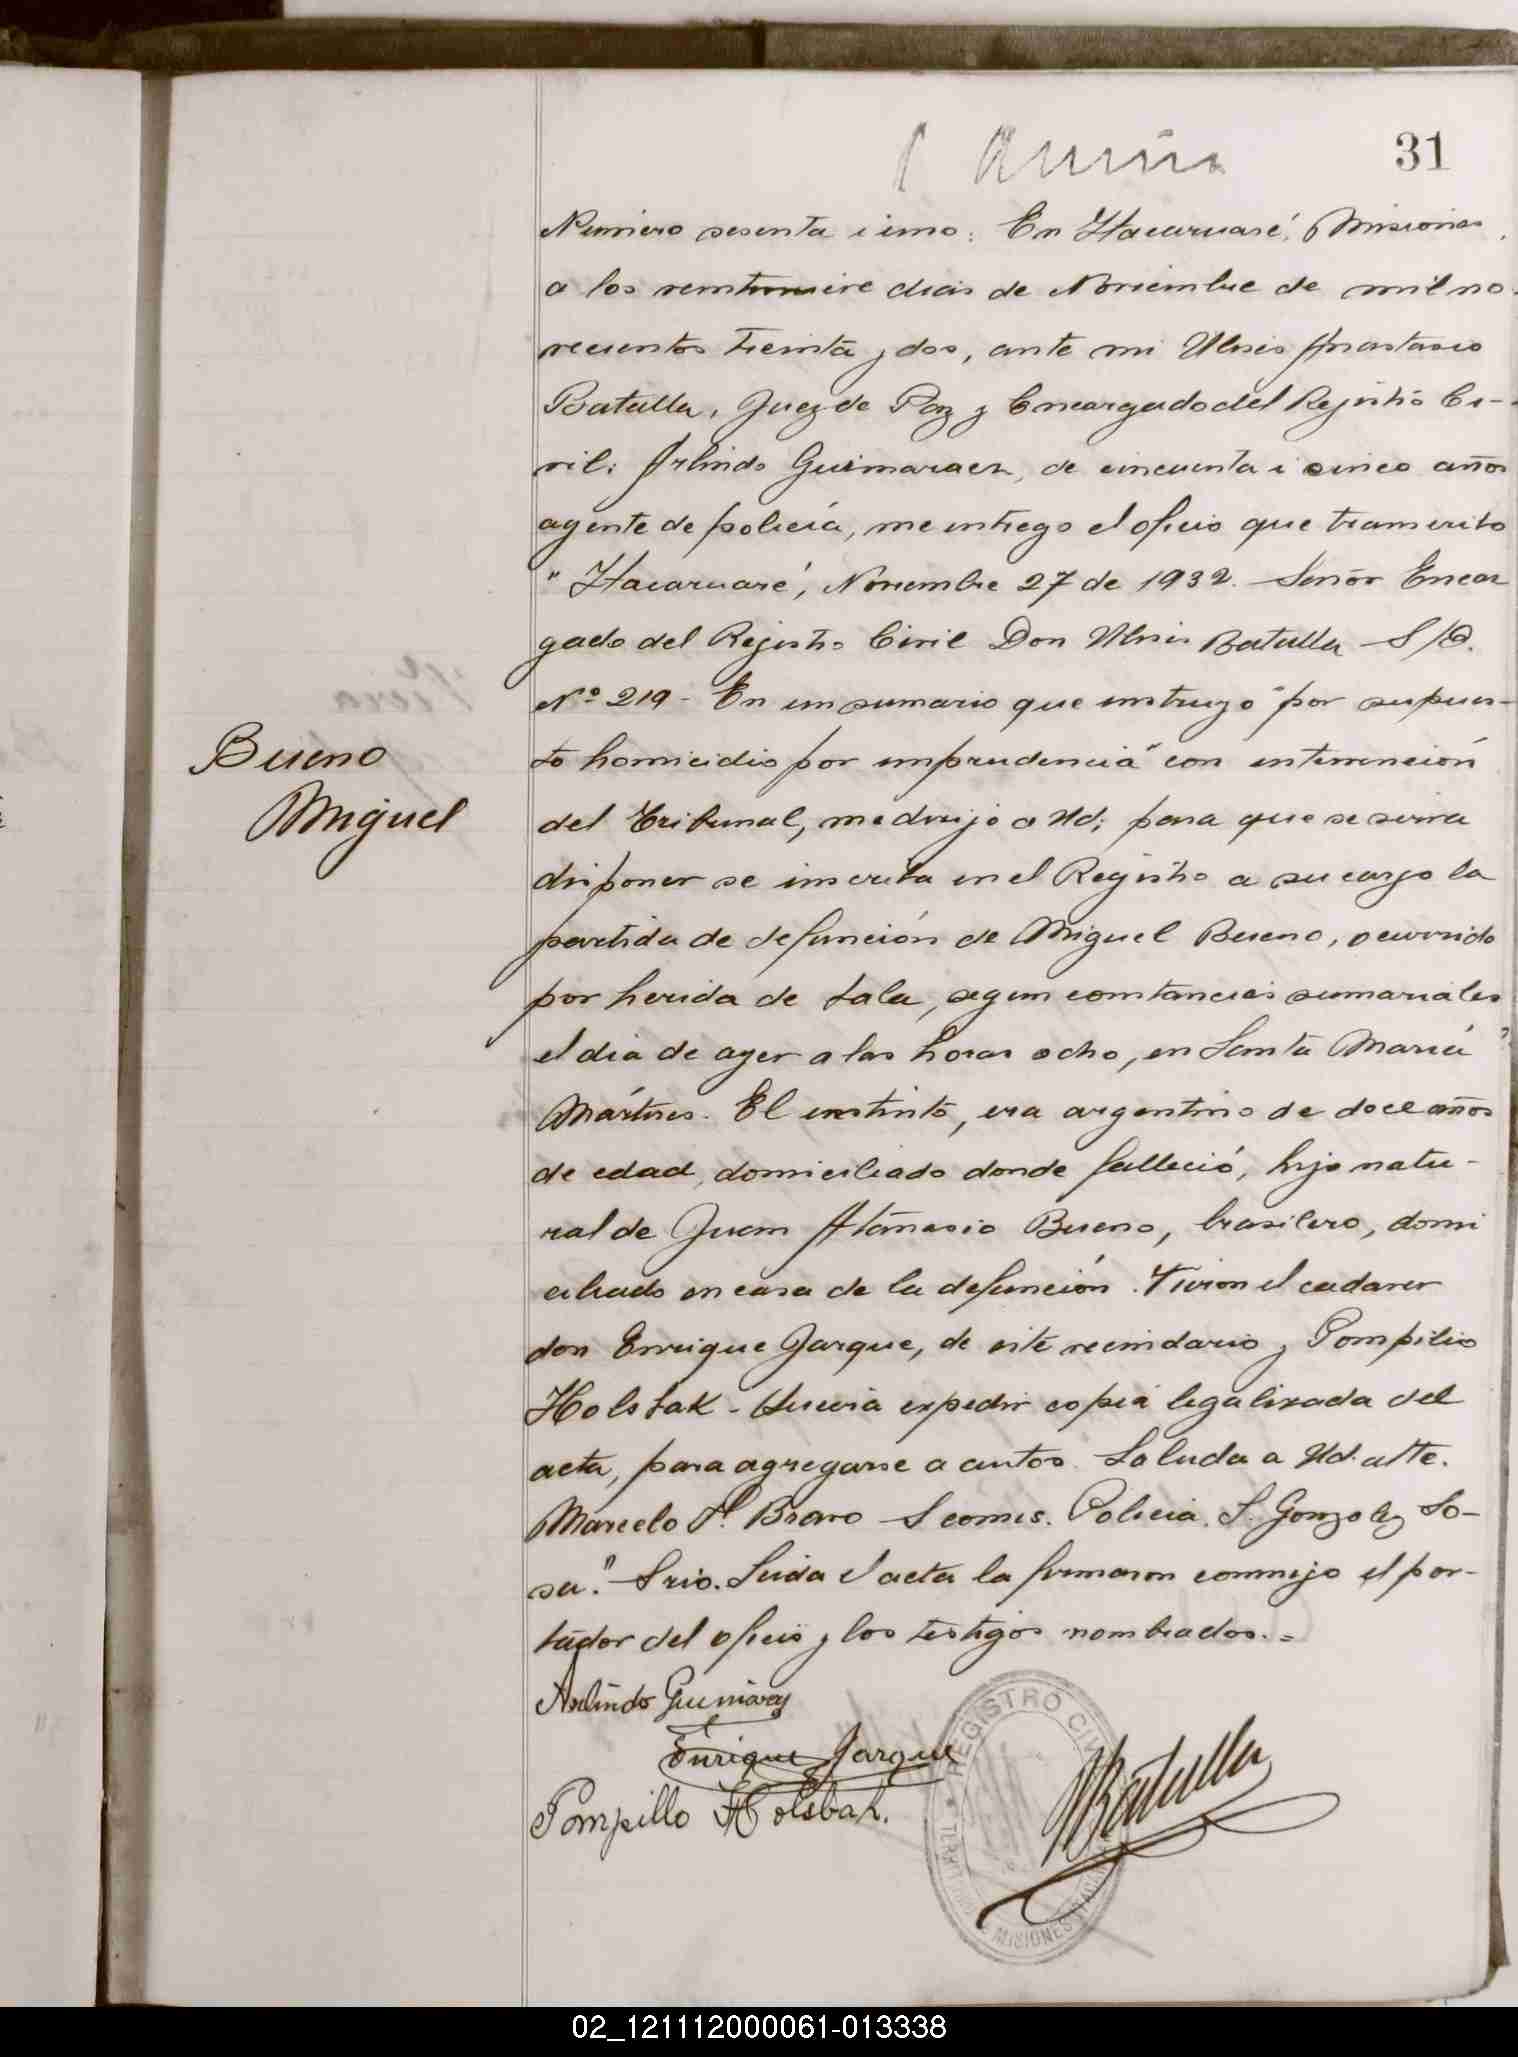 31
Número sesenta i uno: En Itacaruaré, Misiones,
a los veintinueve dias de Noviembre de mil no-
vecientos treinta y dos, ante mi Ulises Anastasio
Batalla, Juez de Paz y Encargado del Rejistro Ci-
vil: Arlindo Guimaraes, de cincuenta i cinco años
agente de policía, me entrego el oficio que transcribo
"Itacaruaré, Noviembre 27 de 1932. Señor Encar
gado del Rejistro Civil Don Ulises Batalla S/D.
Nº 219 - En un sumario que instruyo "por supues-
to homicidio por imprudencia" con intervención
del Tribunal, me dirijo a Ud; para que se sirva
disponer se inscriba en el Registro a su cargo la
partida de defunción de Miguel Bueno, ocurrido
por herida de bala, segun constancias sumariales
el dia de ayer a las horas ocho, en Santa María
Mártires. El extinto, era argentino de doce años
de edad, domiciliado donde falleció, hijo natu-
ral de Juan Atanasio Bueno, brasilero, domi
ciliado en casa de la defunción. Vieron el cadaver
don Enrique Jarque, de este vecindario y Pompilio
Holsbak - Querria expedir copia legalizada del
acta, para agregarse a autos. Saluda a Ud. atte.
Marcelo P. Bravo S comis. Policia. S. Gonzalez So-
sa." Srio. Leida el acta la firmaron conmigo el por-
tador del oficio y los testigos nombrados.=
Bueno
Miguel
Arlindo Guimaraes
Enrique Jarque
Pompillo Holsbak.
UBatalla
REGISTRO CIVIL
TERRITORIO DE MISIONES
02_121112000061-013338